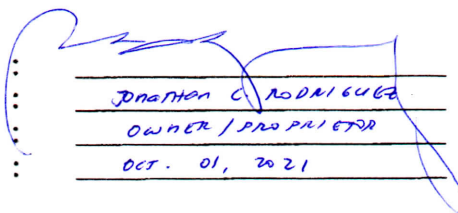 :
: JONATHAN C. RODRIGUEZ
: OWNER / PROPRIETOR
: OCT. 01, 2021